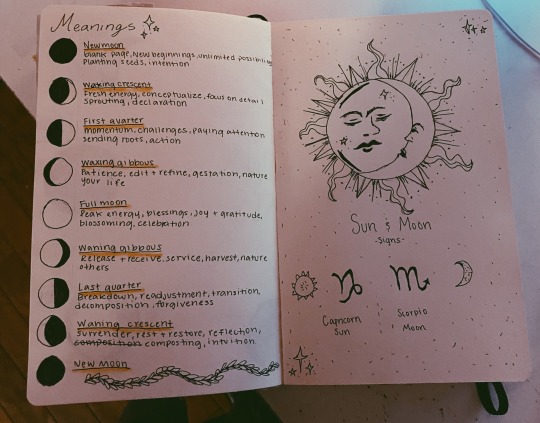 Meanings
New moon
blank page, New beginnings, unlimited possibility
Planting seeds, intention
Waxing crescent
Fresh energy, conceptualize, focus on detail
Sprouting, declaration
First quarter
momentum, challenges, paying attention
sending roots, action
Waxing gibbous
Patience, edit + refine, gestation, nature
your life
Full moon
Peak energy, blessings, joy + gratitude,
blossoming, celebration
Waning gibbous
Release + receive, service, harvest, nature
others
Last quarter
Breakdown, readjustment, transition,
decomposition, forgiveness
Waning crescent
Surrender, rest + restore, reflection,
composition composting, intuition
New Moon
Sun & Moon
-signs-
♑ ♏
Capricorn
Sun
Scorpio
Moon